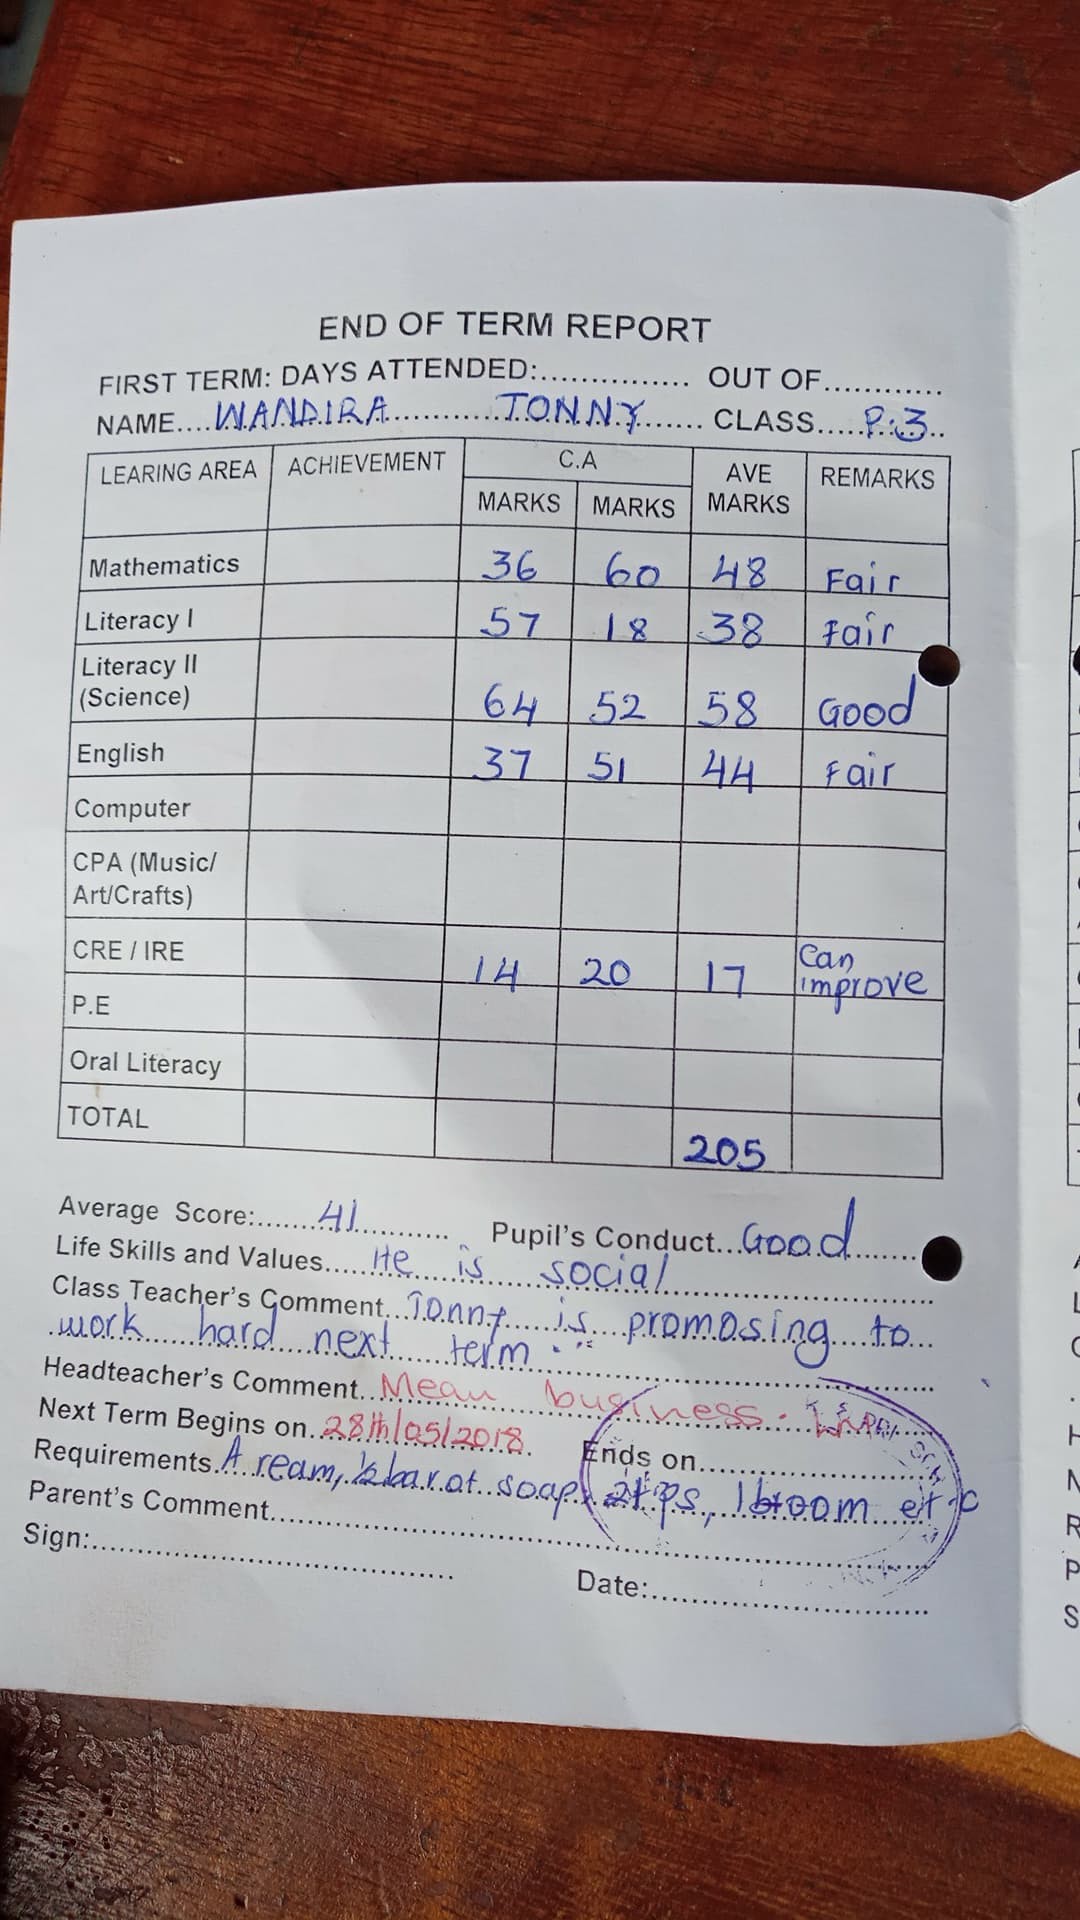 END OF TERM REPORT
FIRST TERM: DAYS ATTENDED:............... OUT OF............
NAME....WANDIRA...........TONNY....... CLASS.....P.3..
LEARING AREA ACHIEVEMENT C.A AVE MARKS REMARKS
MARKS MARKS
Mathematics 36 60 48 Fair
Literacy I 57 18 38 Fair
Literacy II
(Science) 64 52 58 Good
English 37 51 44 Fair
Computer
CPA (Music/
Art/Crafts)
CRE / IRE 14 20 17 Can improve
P.E
Oral Literacy
TOTAL 205
Average Score:.......41........... Pupil's Conduct...Good.......
Life Skills and Values.....He is social
Class Teacher's Comment...Tonny is promosing to...
work hard next term.
Headteacher's Comment..Mean business.
Next Term Begins on..28th/05/2018. Ends on
Requirements.A ream, ½ bar of soap, 2tps, 1broom etc
Parent's Comment
Sign:
Date: